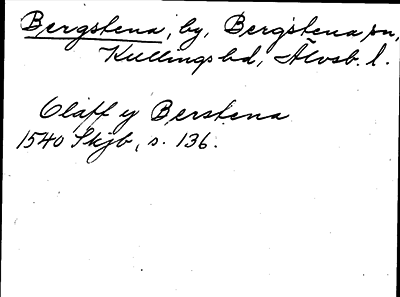 Bergstena, by, Bergstena sn,
Kullings hd, Älvsb. l.
Olaff y Berstena
1540 Skjb, s. 136.